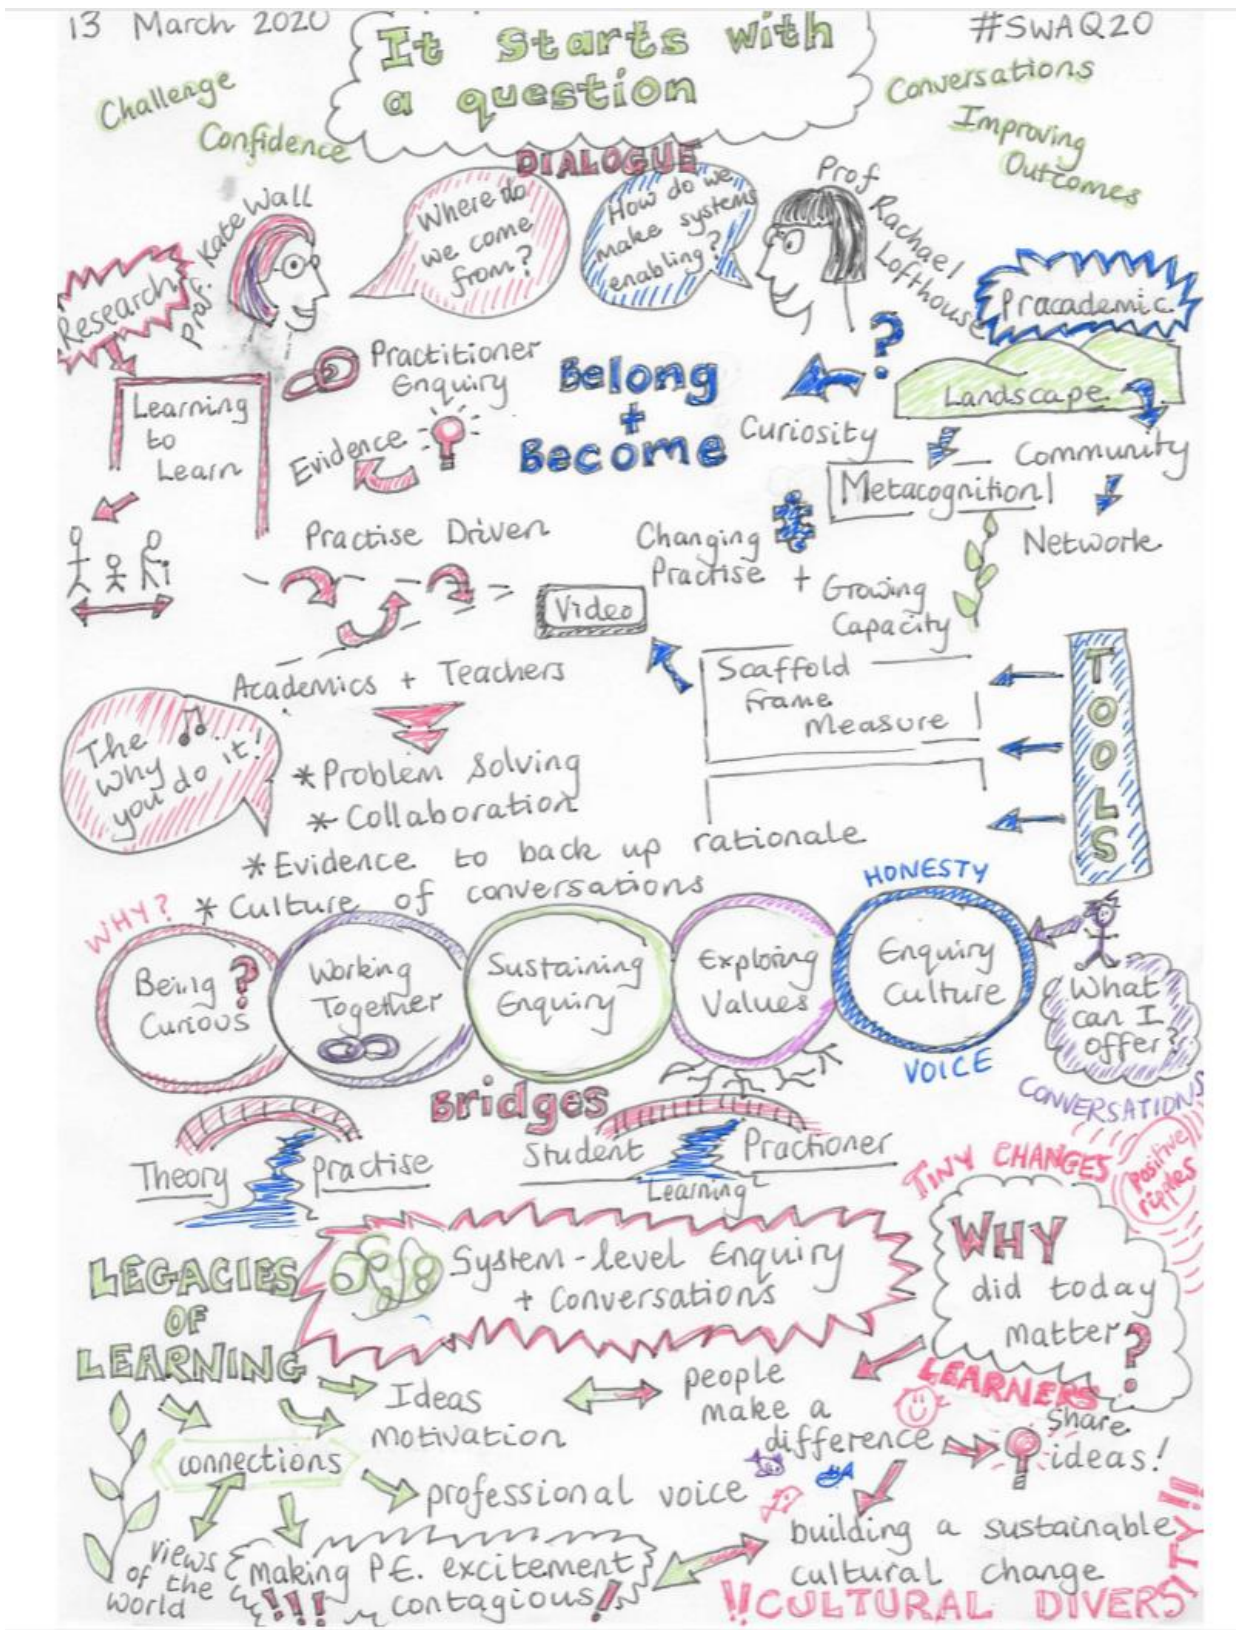 13 March 2020
It starts with
a question
#SWAQ20
Challenge
Confidence
Conversations
Improving
Outcomes
DIALOGUE
Prof. Kate Wall
Where do
we come
from?
How do we
make systems
enabling?
Prof Rachael
Lofthouse
Research
Pracademic
Practitioner
Enquiry
Belong
+
Become
?
Landscape
Learning
to
Learn
Evidence
Curiosity
Community
Metacognition
Practise Driven
Changing
Practise + Growing
Capacity
Network
Video
Academics + Teachers
Scaffold
frame
measure
TOOLS
The
why
you do it!
* Problem Solving
* Collaboration
* Evidence to back up rationale
* Culture of conversations
WHY?
HONESTY
Being ?
Curious
Working
Together
Sustaining
Enquiry
Exploring
Values
Enquiry
Culture
VOICE
What
can I
offer?
CONVERSATIONS
Bridges
Theory
Practise
Student
Practioner
Learning
TINY CHANGES
positive
ripples
LEGACIES
OF
LEARNING
System-level Enquiry
+ Conversations
WHY
did today
matter?
Ideas
Motivation
people
make a
difference
LEARNERS
Share
ideas!
connections
professional voice
views
of the
world
Making P.E. excitement
!!!! contagious!
building a sustainable
cultural change
!!CULTURAL DIVERSITY!!